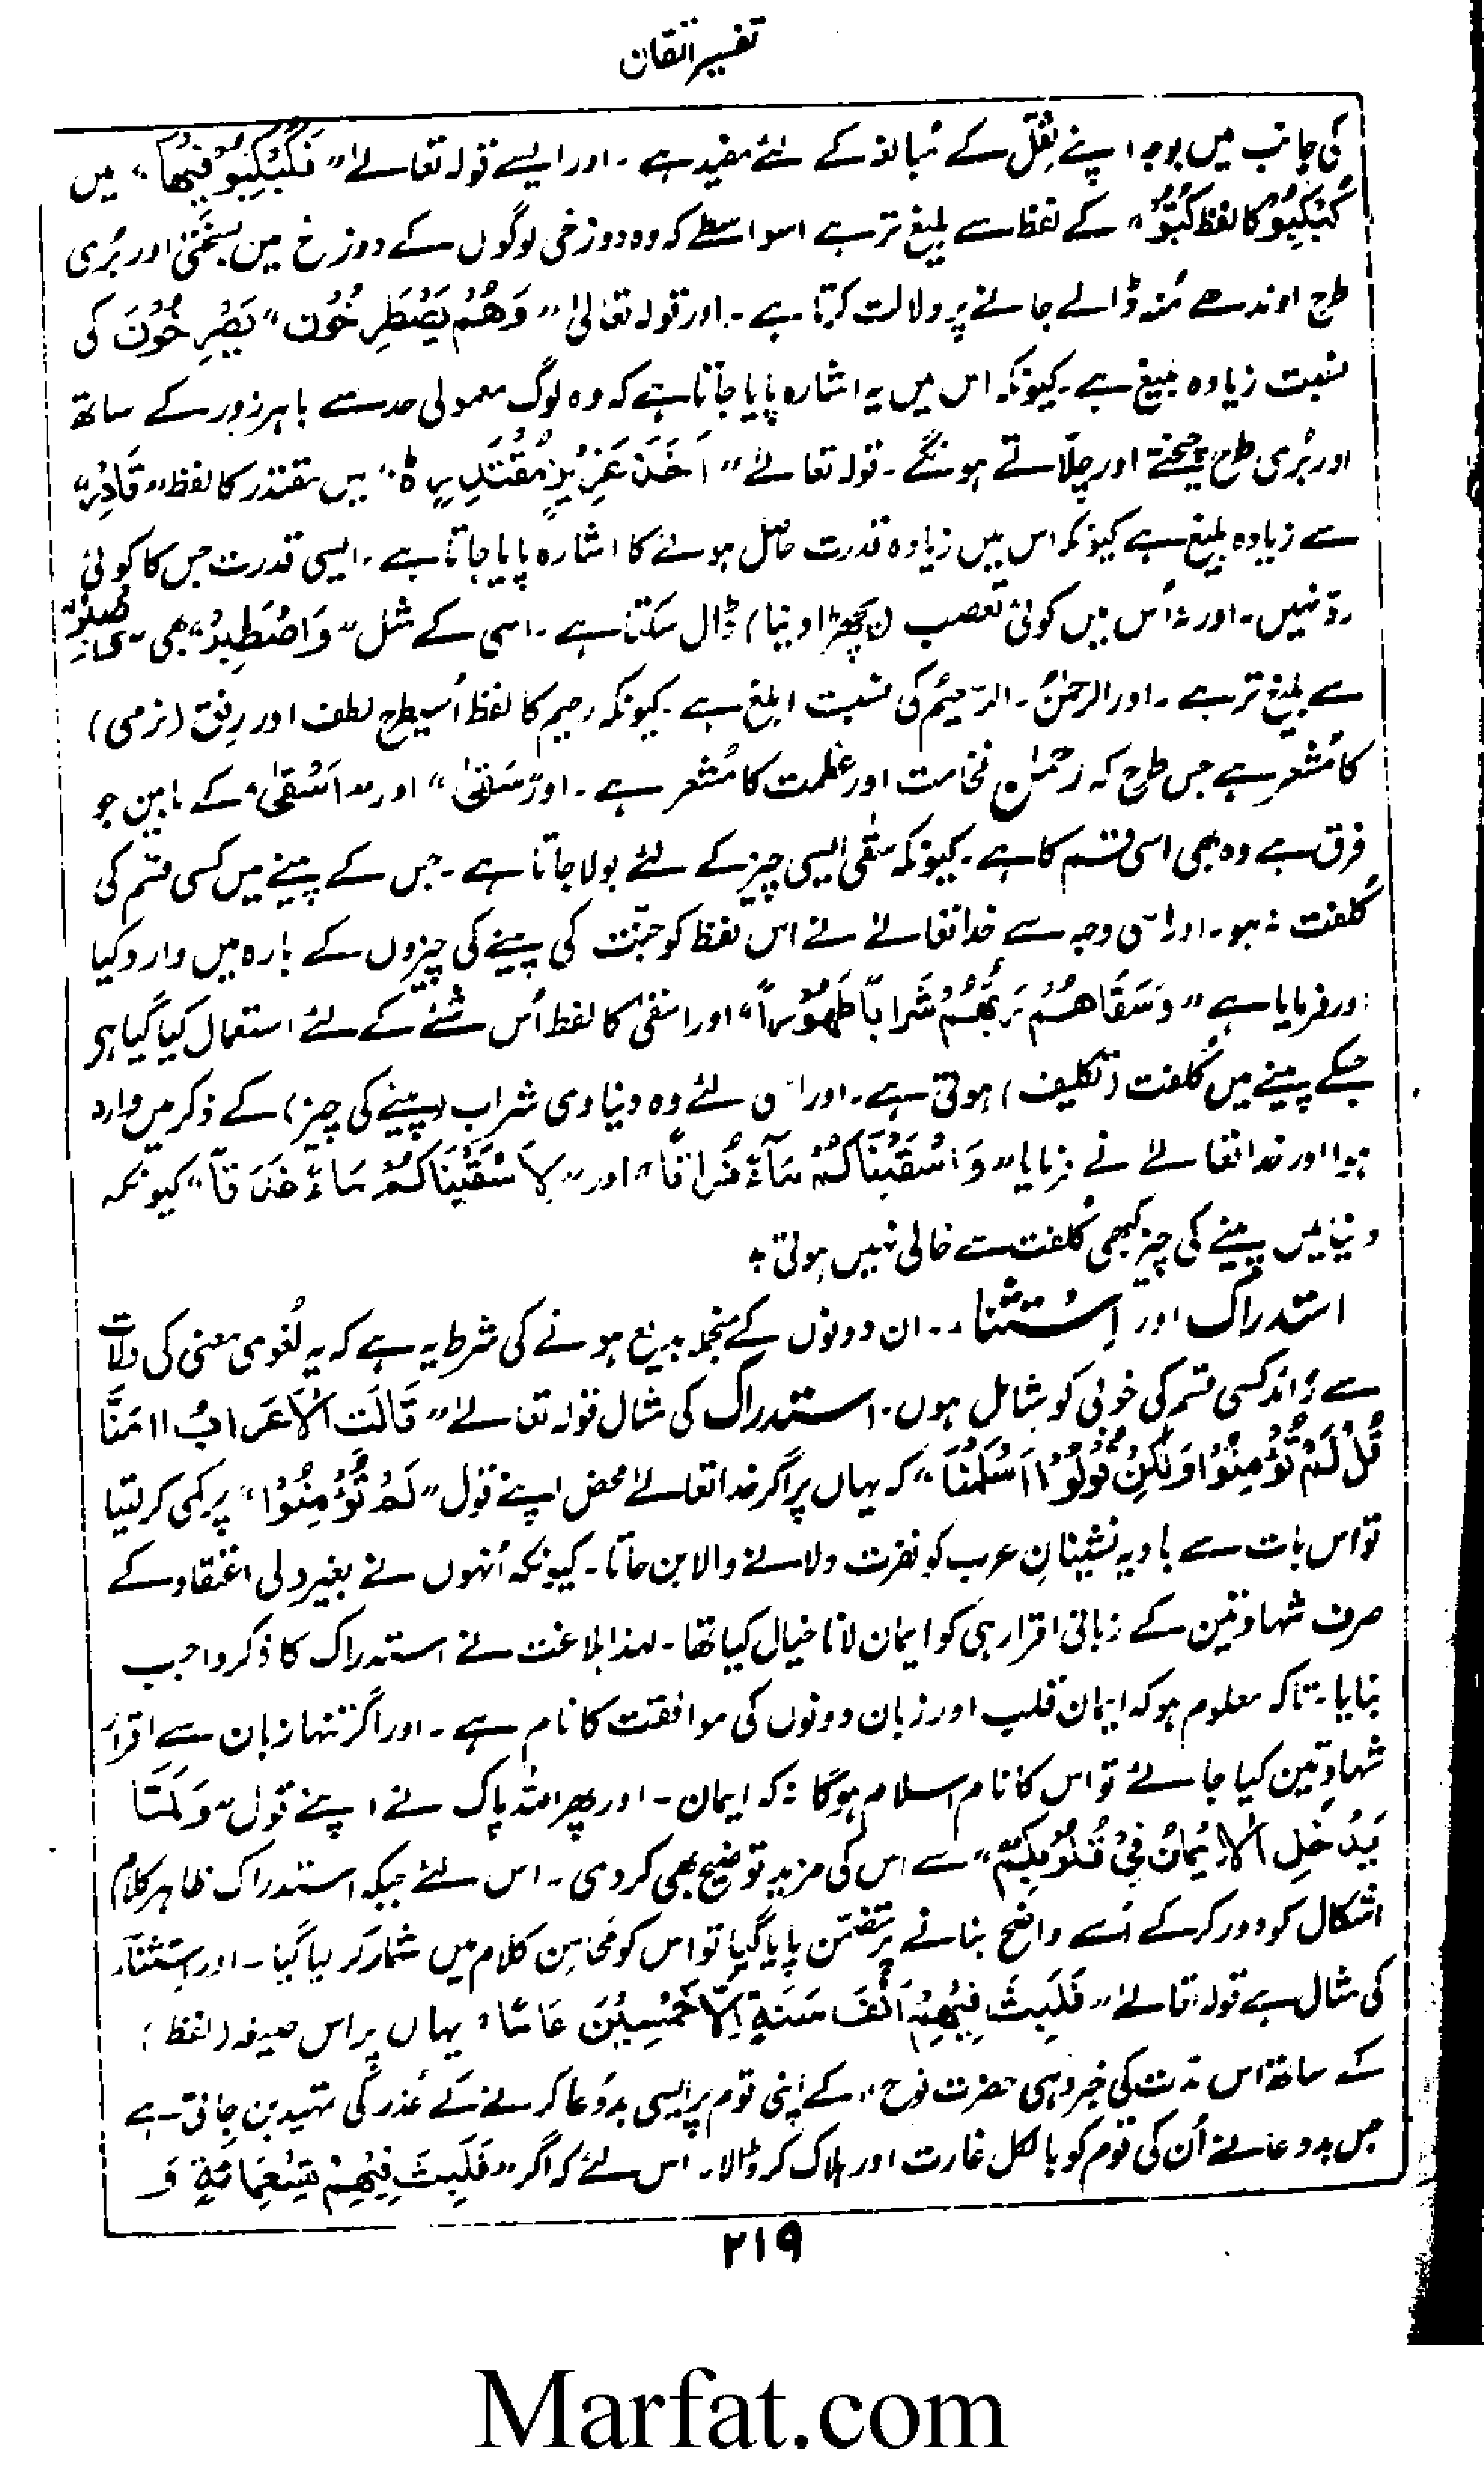 تفسیر اتقان
کی جانب میں بوجہ اپنے ثِقَل کے مُبالغہ کے لئے مفید ہے ۔ اور ایسے قولہ تعالےٰ ”فَکُبْکِبُوْ فِیْھَا“ میں
کُبْکِبُوْ کا لفظ کُبُّوْ“ کے لفظ سے بلیغ تر ہے اسواسطے کہ وہ دوزخی لوگوں کے دوزخ میں بسختی اور بُری
طرح اوندھے مُنہ ڈالے جانے پر دلالت کرتا ہے ۔ اور قولہ تعالیٰ ”وَھُمْ یَصْطَرِخُوْن“ یَصْرِخُوْنَ کی
نسبت زیادہ بلیغ ہے ۔ کیونکہ اس میں یہ اشارہ پایا جاتا ہے کہ وہ لوگ معمولی حد سے باہر زور کے ساتھ
اور بُری طرح چیختے اور چِلّاتے ہونگے ۔ قولہ تعالےٰ ”اَخْذَ عَزِیْزٍ مُقْتَدِرٍ ہ“ میں مقتدر کا لفظ ”قَادِرٌ“
سے زیادہ بلیغ ہے کیونکہ اس میں زیادہ قدرت حاصل ہونے کا اشارہ پایا جاتا ہے ۔ ایسی قدرت جس کا کوئی
ردّ نہیں ۔ اور نہ اُس میں کوئی تعصب ڈال سکتا ہے ۔ اسی کے مثل ”وَاصْطَبِرْ“ بھی
سے بلیغ تر ہے ۔ اور الرحمٰنُ ۔ الرّحِیْم کی نسبت ابلغ ہے ۔ کیونکہ رحیم کا لفظ اُسیطرح لطف اور رِفق (نرمی)
کا مُشعر ہے جس طرح کہ رحمٰن فخامت اور عظمت کا مُشعر ہے ۔ اور ”سَقیٰ“ اور ”اَسْقیٰ“ کے مابین جو
فرق ہے وہ بھی اسی قسم کا ہے ۔ کیونکہ سَقیٰ ایسی چیز کے لئے بولا جاتا ہے ۔ جس کے پینے میں کسی قسم کی
کُلفت نہ ہو ۔ اور اسی وجہ سے خدا تعالےٰ نے اس لفظ کو جنّت کی پینے کی چیزوں کے بارہ میں وارد کیا
اور فرمایا ہے ”وَسَقَاھُمْ رَبُّھُمْ شَرَاباً طَھُوْراً“ اور اسقیٰ کا لفظ اُس شئے کے لئے استعمال کیا گیا ہی
جسکے پینے میں کُلفت (تکلیف) ہوتی ہے ۔ اور اسی لئے وہ دنیاوی شراب (پینے کی چیز) کے ذکر میں وارد
ہوا اور خدا تعالےٰ نے فرمایا ”وَاَسْقَیْنَاکُمْ مَآءً فُرَاتًا“ اور ”لَاَسْقَیْنَاکُمْ مَاءً غَدَقاً“ کیونکہ
دنیا میں پینے کی چیز کبھی کُلفت سے خالی نہیں ہوتی ٭
استدراک اور اِستثناء ۔ ان دونوں کے منجملہ بدیع ہونے کی شرط یہ ہے کہ یہ لُغوی معنی کی دلالت
سے زائد کسی قسم کی خوبی کو شامل ہوں ۔ استدراک کی مثال قولہ تعالےٰ ”قَالَتِ الْاَعْرَابُ اٰمَنَّا
قُلْ لَمْ تُؤْمِنُوْا وَلٰکِنْ قُوْلُوْا اَسْلَمْنَا“ کہ یہاں پر اگر خدا تعالےٰ محض اپنے قول ”لَمْ تُؤْمِنُوْا“ پر کمی کر لیتا
تو اس بات سے بادیہ نشینانِ عرب کو نفرت دلانے والا بن جاتا ۔ کیونکہ اُنہوں نے بغیر دلی اعتقاد کے
صرف شہادتین کے زبانی اقرار ہی کو ایمان لانا خیال کیا تھا ۔ لہذا بلاغت نے استدراک کا ذکر واجب
بنایا ۔ تاکہ معلوم ہو کہ ایمان قلب اور زبان دونوں کی موافقت کا نام ہے ۔ اور اگر تنہا زبان سے اقرار
شہادتین کیا جائے تو اس کا نام اسلام ہوگا نہ کہ ایمان ۔ اور پھر اللہ پاک نے اپنے قول ”وَلَمَّا
یَدْخُلِ الْاِیْمَانُ فِیْ قُلُوْبِکُمْ“ سے اس کی مزید توضیح بھی کردی ۔ اس لئے جبکہ استدراک ظاہر کلام
اشکال کو دور کرکے اُسے واضح بنانے پر متضمّن پایا گیا تو اس کو مَحاسِن کلام میں شمار کر لیا گیا ۔ اور اِستثنآء
کی مثال ہے قولہ تعالےٰ ”فَلَبِثَ فِیْھِمْ اَلْفَ سَنَۃٍ اِلَّا خَمْسِیْنَ عَامًا“ یہاں پر اس صیغہ (لفظ)
کے ساتھ اس مدّت کی خبر دہی حضرت نوح ؑ کے اپنی قوم پر ایسی بددُعا کرنے کے عُذر کی تمہید بن جاتی ہے
جس بددعا نے اُن کی قوم کو بالکل غارت اور ہلاک کر ڈالا ۔ اس لئے کہ اگر ”فَلَبِثَ فِیْھِمْ تِسْعَمِائَۃٍ وَ
۲۱۹
Marfat.com